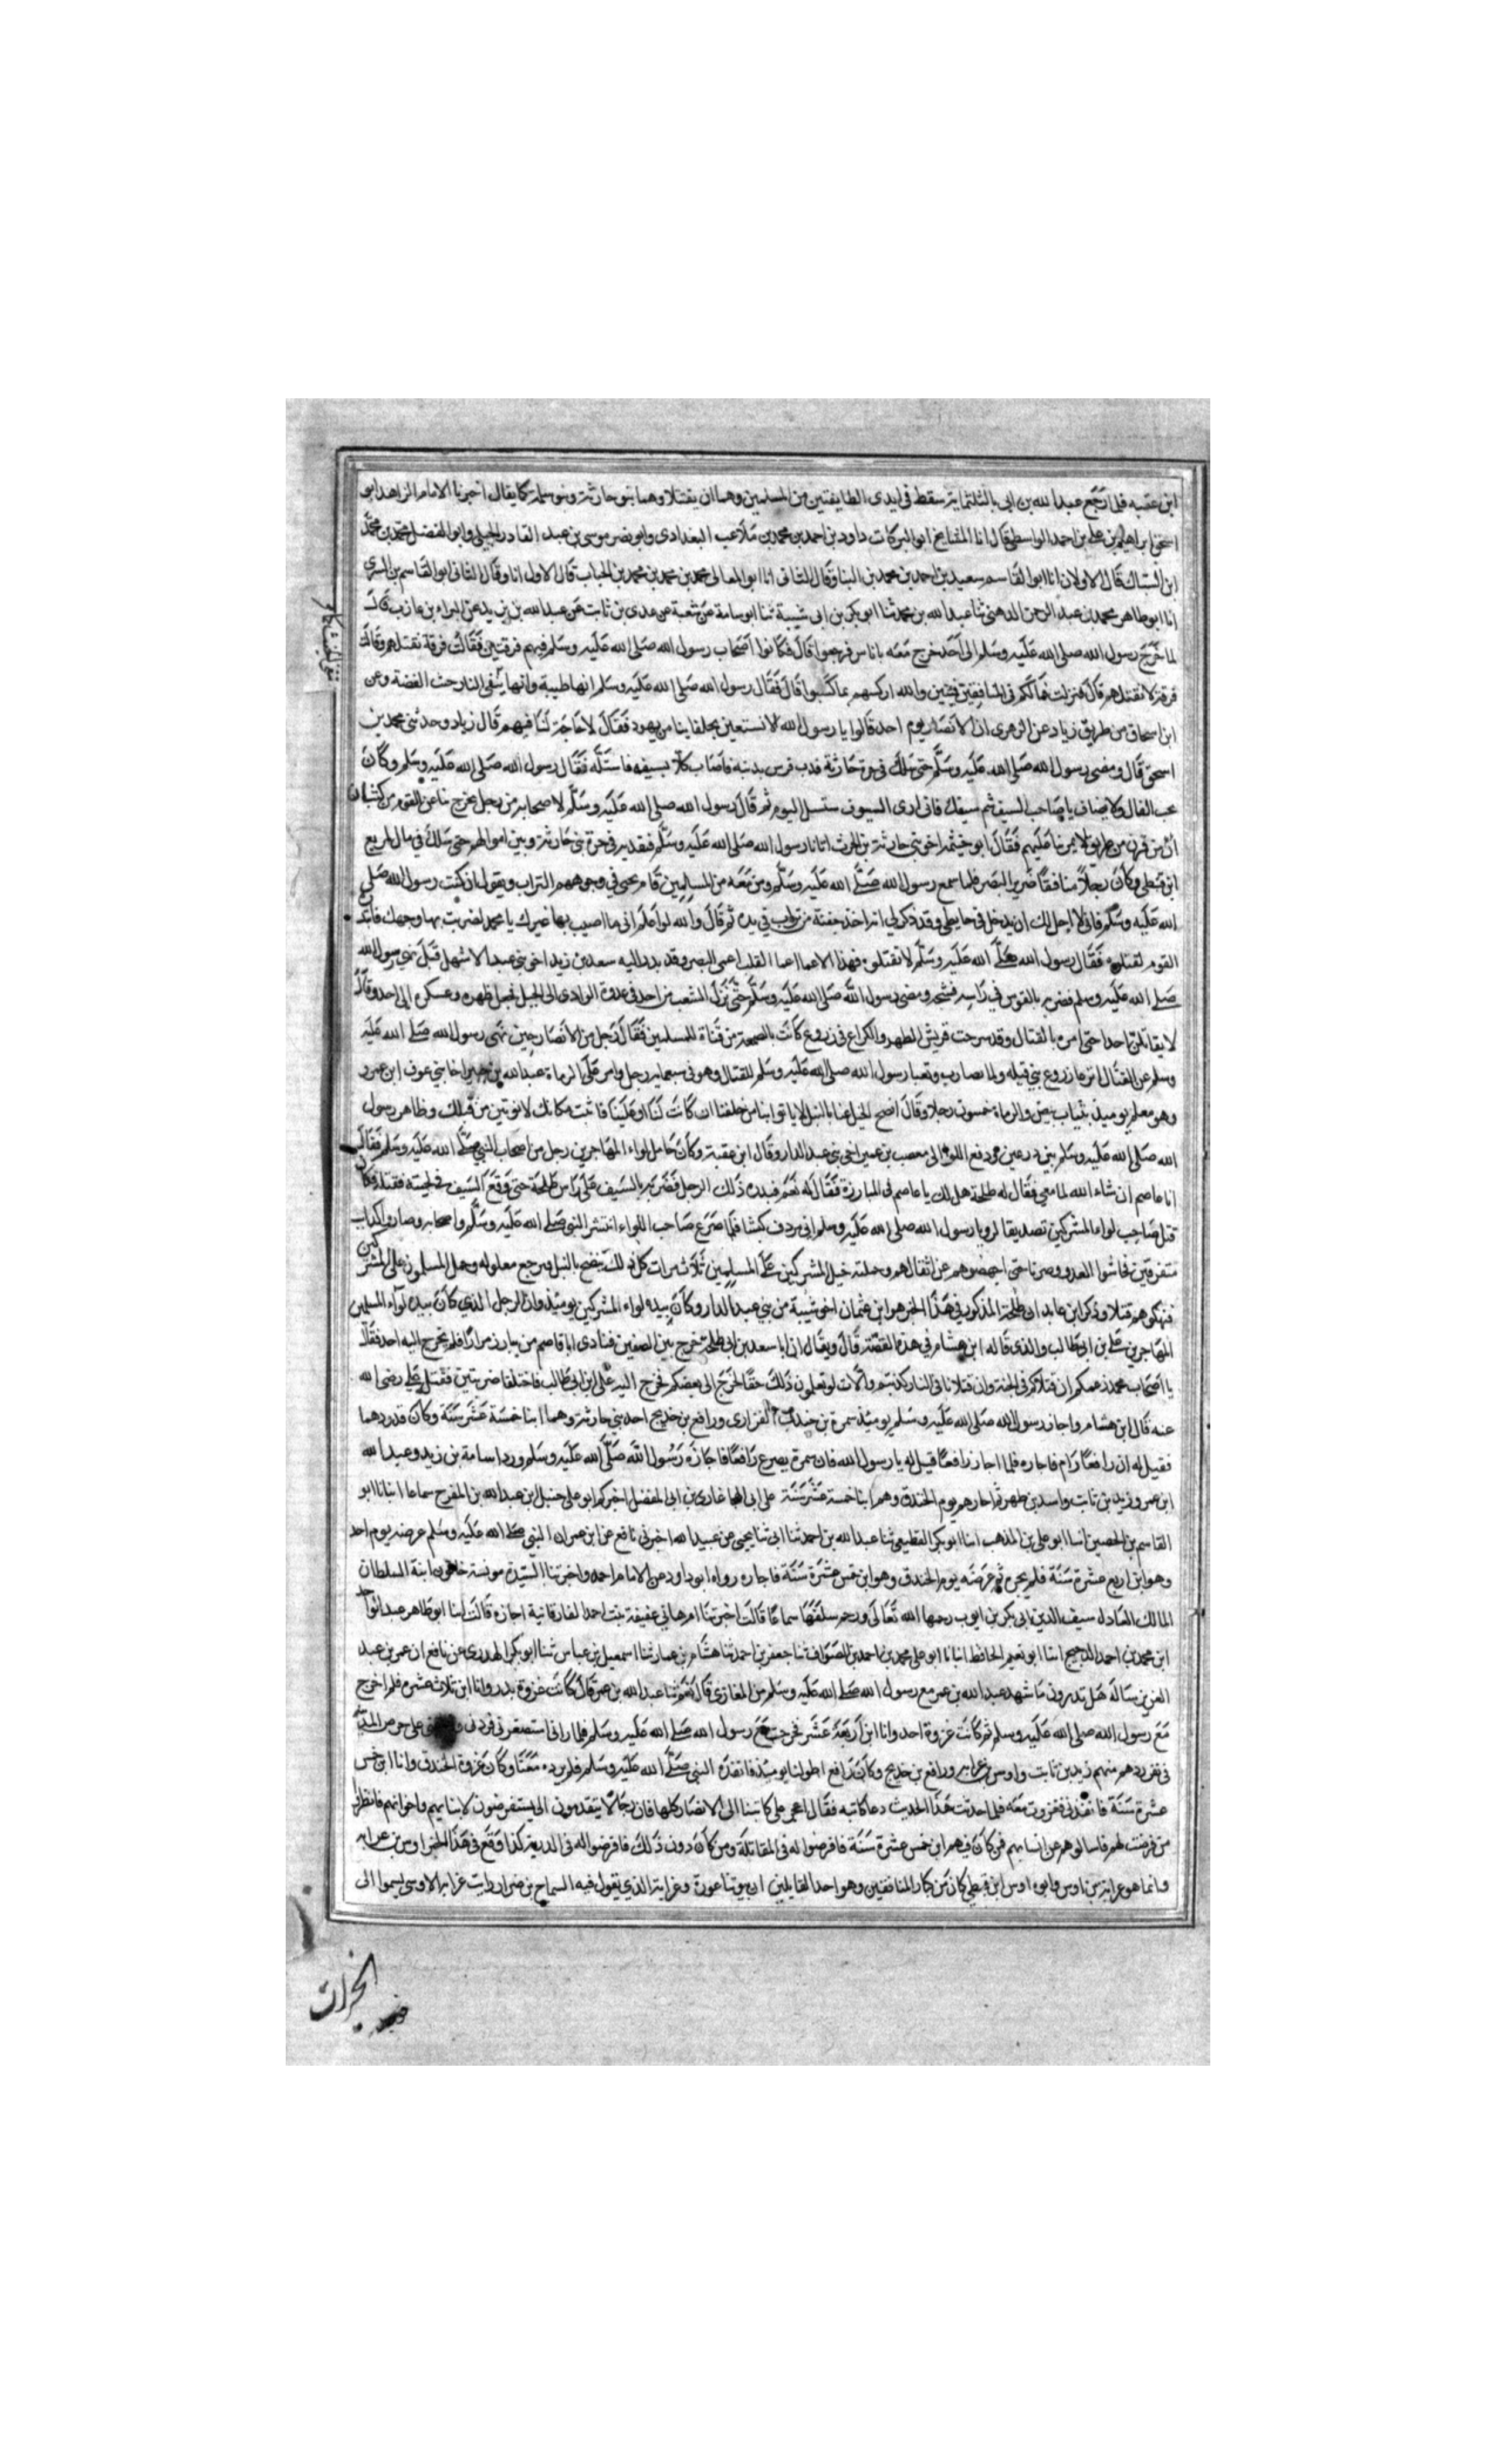 ابن عقبه فلما رجع عبد الله بن ابى بالثلثماية سقط فى ايدى الطايفتين من المسلمين وهما ان يقتتلا وهما بنو حارثة وبنو سلمة كما يقال اخبرنا الامام الزاهد ابو
اسحق ابراهيم بن على بن احمد الواسطى قال انا المشايخ ابو البركات داود بن احمد بن محمد بن ملاعب البغدادى وابو نصر موسى بن عبد القادر الجيلى وابو الفضل محمد بن محمد
ابن السباك قال الاولان انا ابو القاسم سعيد بن احمد بن محمد بن البنا وقال الثانى انا ابو المعالى محمد بن محمد بن محمد بن الجباب قال الاول انا وقال الثانى ابو القاسم بن البسرى
انا ابو طاهر محمد بن عبد الرحمن الذهبى ثنا عبد الله بن محمد ثنا ابو بكر بن ابى شيبة ثنا ابو سامة عن شعبة عن عدى بن ثابت عن عبد الله بن يزيد عن البراء بن عازب قال
لما خرج رسول الله صلى الله عليه وسلم الى احد خرج معه باناس فرجعوا قال فكانوا اصحاب رسول الله صلى الله عليه وسلم فيهم فرقتين فقالت فرقة نقتلهم وقالت
فرقة لا نقتلهم قال فنزلت فما لكم فى المنافقين فئتين والله اركسهم بما كسبوا قال فقال رسول الله صلى الله عليه وسلم انها طيبة وانها تنفى النار خبث الفضة وعن
ابن اسحاق من طريق زياد عن الزهرى ان الانصار يوم احد قالوا يا رسول الله الا نستعين بحلفاينا من يهود فقال لا حاجة لنا فيهم قال زياد وحدثنى محمد بن
اسحق قال ومضى رسول الله صلى الله عليه وسلم حتى سلك فى حرة حارثة فذب فرس بذنبه فاصاب كلاب سيفه فاستله فقال رسول الله صلى الله عليه وسلم وكان
يحب الفال ولا يعتاف يا صاحب السيف شم سيفك فانى ارى السيوف ستسل اليوم ثم قال رسول الله صلى الله عليه وسلم لاصحابه من رجل يخرج بنا على القوم من كثب
اى من قرب من طريق لا يمر بنا عليهم فقال ابو خيثمة اخو بنى حارثة بن الحرث انا يا رسول الله صلى الله عليه وسلم فنفذ به فى حرة بنى حارثة وبين اموالهم حتى سلك فى مال لمربع
ابن قيظى وكان رجلا منافقا ضرير البصر فلما سمع رسول الله صلى الله عليه وسلم ومن معه من المسلمين قام يحثى فى وجوههم التراب ويقول ان كنت رسول الله صلى
الله عليه وسلم فانى لا احل لك ان تدخل فى حايطى وقد ذكر لى انه اخذ حفنة من تراب فى يده ثم قال والله لو اعلم انى ما اصيب بها غيرك يا محمد لضربت بها وجهك فابتد
القوم لقتله فقال رسول الله صلى الله عليه وسلم لا تقتلوه فهذا الاعمى اعمى القلب اعمى البصر وقد بدر اليه سعد بن زيد اخو بنى عبد الاشهل قبل نهى رسول الله
صلى الله عليه وسلم فضربه بالقوس فى راسه فشجه ومضى رسول الله صلى الله عليه وسلم حتى نزل الشعب من احد فى عدوة الوادى الى الجبل فجعل ظهره وعسكره الى احد وقال
لا يقاتلن احد احتى امره بالقتال وقد سرحت قريش الظهر والكراع فى زروع كانت بالصمغة من قناة للمسلمين فقال رجل من الانصار حين نهى رسول الله صلى الله عليه
وسلم عن القتال اترعا زروع بنى قيله ولما نضارب وتعبا رسول الله صلى الله عليه وسلم للقتال وهو فى سبعماية رجل وامر على الرماة عبد الله بن جبير اخا بنى عوف ابن عمرو
وهو معلم يوميذ بثياب بيض والرماة خمسون رجلا وقال انضح الخيل عنا بالنبل لا ياتونا من خلفنا ان كانت لنا او علينا فاثبت مكانك لا نوتين من قبلك وظاهر رسول
الله صلى الله عليه وسلم بين درعين ودفع اللواء الى مصعب بن عمير اخى بنى عبد الدار وقال ابن عقبة وكان حامل لواء المهاجرين رجل من اصحاب النبى صلى الله عليه وسلم فقال
انا عاصم ان شاء الله لما معى فقال له طلحة هل لك يا عاصم فى المبارزة فقال له نعم فبدره ذلك الرجل فضربه بالسيف على راس طلحة حتى وقع السيف فى لحيته فقتله فكان
قتل صاحب لواء المشركين تصديقا لرويا رسول الله صلى الله عليه وسلم انى مردف كبشا فلما صرع صاحب اللواء انتشر النبى صلى الله عليه وسلم واصحابه وصاروا كتايب
متفرقين فجاسوا العدو وضربا حتى اجهضوهم عن اثقالهم وحملت خيل المشركين على المسلمين ثلاث مرات كل ذلك تنضح بالنبل فيرجع مغلوله وحمل المسلمون على المشركين
فنهكوهم قتلا وذكر ابن عايد ان طلحة المذكور فى هذا الخبر هو ابن عثمان اخو شيبة من بنى عبد الدار وكان بيده لواء المشركين يوميذ وان الرجل الذى كان بيده لواء المسلمين
المهاجرين على بن ابى طالب والذى قاله ابن هشام فى هذه القصة قال ويقال ان ابا سعد بن ابى طلحة خرج بين الصفين فنادى ابا قاصم من يبارز مرارا فلم يخرج اليه احد فقال
يا اصحاب محمد زعمكم ان قتلاكم فى الجنة وان قتلانا فى النار كذبتم واللات لو تعلمون ذلك حقا لخرج الى بعضكم فخرج اليه على ابن ابى طالب فاختلفا ضربتين فقتله على رضى الله
عنه قال ابن هشام واجاز رسول الله صلى الله عليه وسلم يوميذ سمرة بن جندب الفزارى ورافع بن خديج احد بنى حارثة وهما ابنا خمسة عشر سنة وكان قد ردهما
فقيل له ان رافعا رام فاجازه فلما اجاز رافعا قيل له يا رسول الله فان سمرة يصرع رافعا فاجازه رسول الله صلى الله عليه وسلم ورد اسامة بن زيد وعبد الله
ابن عمر وزيد بن ثابت واسيد بن ظهير ثم اجازهم يوم الخندق وهم ابنا خمسة عشر سنة على ابى الهيجا غازى بن ابى الفضل اخبركم ابو على حنبل بن عبد الله بن المفرج سماعا انبانا ابو
القاسم بن الحصين انبا ابو على بن المذهب انبا ابو بكر القطيعى ثنا عبد الله بن احمد ثنا ابى ثنا يحيى عن عبيد الله اخبرنى نافع عن ابن عمر ان النبى صلى الله عليه وسلم عرضه يوم احد
وهو ابن اربع عشرة سنة فلم يجزه ثم عرضه يوم الخندق وهو ابن خمس عشرة سنة فاجازه رواه ابو داود عن الامام احمد واخبرتنا السيدة مونسة خاتون ابنة السلطان
المالك العادل سيف الدين ابى بكر بن ايوب رحمها الله تعالى ورحم سلفها سماعا قالت اخبرتنا ام هانى عفيفة بنت احمد الفارقانية اجازه قالت انبا ابو طاهر عبد الواحد
ابن محمد بن احمد الدحيح انبا ابو نعيم الحافظ انبانا ابو على محمد بن احمد بن الصواف ثنا جعفر بن احمد ثنا هشام بن عمار ثنا اسمعيل بن عياش ثنا ابو بكر الهذلى عن نافع ان عمر بن عبد
العزيز ساله هل تدرون ما شهد عبد الله بن عمر مع رسول الله صلى الله عليه وسلم من المغازى قال نعم ثنا عبد الله بن عمر قال كانت غزوة بدر وانا ابن ثلاث عشرة فلم اخرج
مع رسول الله صلى الله عليه وسلم ثم كانت غزوة احد وانا ابن اربعة عشر فخرجت مع رسول الله صلى الله عليه وسلم فلما رانى استصغرنى فردنى على حرس المدينة
فى نفر ردهم منهم زيد بن ثابت واوس بن عرابه ورافع بن خديج وكان رافع اطولنا يوميذ فانفذه النبى صلى الله عليه وسلم فلم يرده معنا وكان غزوة الخندق وانا ابن خمس
عشرة سنة فانفذنى فغزوت معه فلما حدثت هذا الحديث دعا كاتبه فقال اعجل على كاتبنا الى الانصار كلها فان رجالا يتقدمون الى يستفرضون لابنايهم واخوانهم فانظر الى
من فرضت لهم فاسالوهم عن انسابهم فمن كان فيهم ابن خمس عشرة سنة فافرضوا له فى المقاتلة ومن كان دون ذلك فافرضوا له فى الذرية كذا وقع فى هذا الخبر اوس بن عرابه
وانما هو عرابة بن اوس وابوه اوس ابن قيظى كان من كبار المنافقين وهو احد القايلين ان بيوتنا عورة وعرابة الذى يقول فيه الشماخ بن ضرار رايت عرابة الاوسى يسموا الى
الخيرات